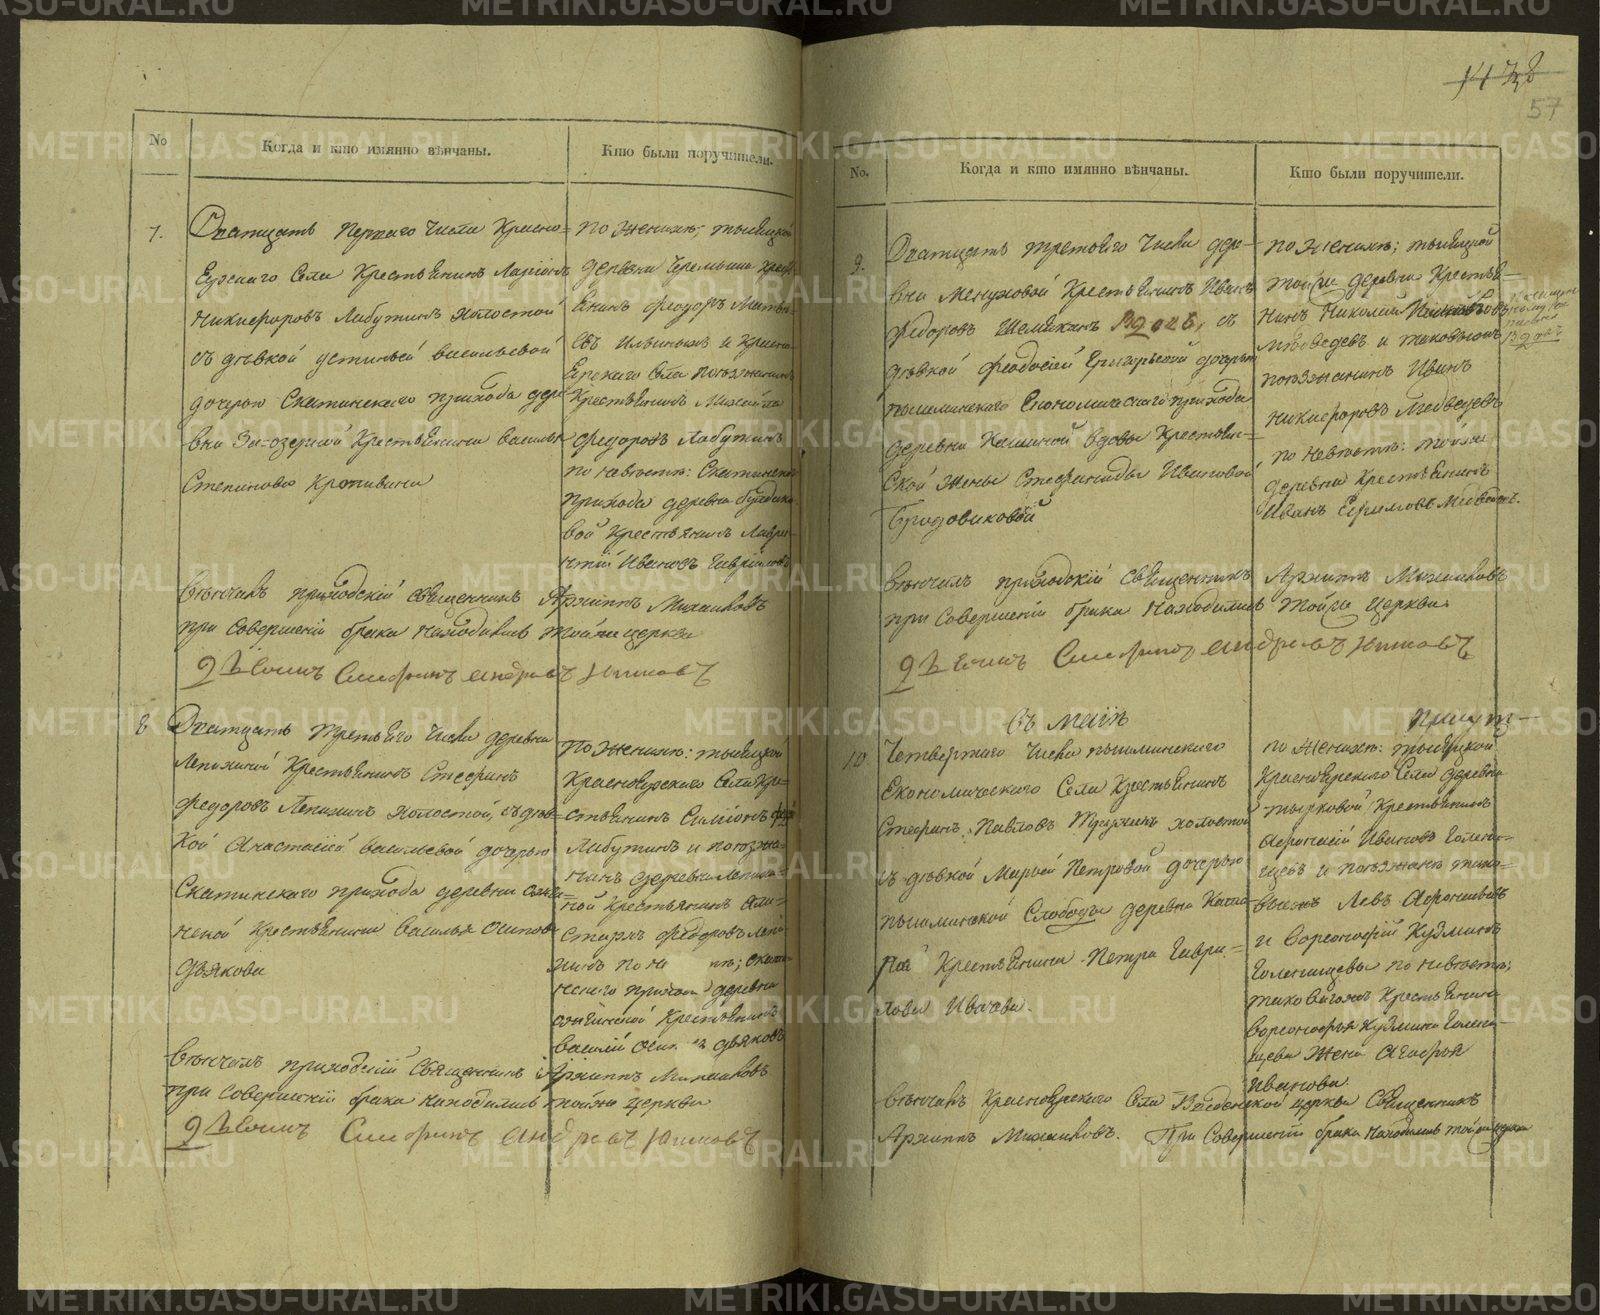 1438
57
No
Когда и кто имянно вѣнчаны.
Кто были поручители.
7.
Дватцать перваго числа Красно=
Ерскаго Села Крестьянинъ Ларіонъ
Никифоровъ Лабутинъ холостой
съ дѣвкой Устиньей Васильевой
дочерью Скатинскаго прихода дере
вни За-озерной Крестьянина Василья
Степанова Кропивина
по женихѣ; тыгицкой
деревни Черемыша Крест
янинъ Феодоръ Матвѣ
евъ Ильиныхъ и Красно
Ерскаго Села поезжанинъ
Крестьянинъ Михайла
Федоровъ Лабутинъ
по невѣстѣ: Скатинскаго
прихода деревни
вой Крестьянинъ Лавре
нтій Ивановъ Гавриловъ
вѣнчалъ приходскій священникъ Архиппъ Михайловъ
при совершеніи брака находились тойже церкви
Дьячокъ Стефанъ Андреевъ
8
Дватцать третьяго числа деревни
Лепихиной Крестьянинъ Стефанъ
Федоровъ Лепихинъ холостой, съ дѣв=
кой Анастасіей Васильевой дочерью
Скатинскаго прихода деревни
Крестьянина Василья Осипова
Дьякова
По женихѣ: тыгицкой
Красноярскаго Села Кре=
стьянинъ Симіонъ
Лабутинъ и поезжа=
нинъ деревни Лепихи=
ной Крестьянинъ
Федоровъ Лепи
хинъ по не тѣ; скати
нскаго прихода деревни
Крестьянинъ
Василій Оси Дьяковъ
вѣнчалъ приходскій священникъ Архиппъ Михайловъ
при совершеніи брака находились тойже церкви
Дьячокъ Стефанъ Андреевъ
No.
Когда и кто имянно вѣнчаны.
Кто были поручители.
9.
Дватцать третьяго числа дере=
вни Менуховой Крестьянинъ Иванъ
Федоровъ Шемякинъ вдовъ, съ
дѣвкой Феодосіей Григорьевой дочерью
пышминскаго Економическаго прихода
деревни Кашиной вдовы Крестьян=
ской жены Стефаниды Ивановой
Бродовиковой
по женихѣ; тыгицкой
тойже деревни Крестья=
нинъ Николай
Медведевъ и таковыижъ
поезжанинъ Иванъ
Никифоровъ Медведевъ
по невѣстѣ: тойже
деревни Крестьянинъ
Иванъ Ефимовъ Медведевъ.
вдовъ
вѣнчалъ приходскій священникъ Архиппъ Михайловъ
при совершеніи брака находились тойже церкви
Дьячокъ Стефанъ Андреевъ
Въ маіѣ
10
Четвертаго числа пышминскаго
Економическаго Села Крестьянинъ
Стефанъ Павловъ холостой
съ дѣвкой Марьей Петровой дочерью
пышминской Слободы деревни
Крестьянина Петра Гаври=
лова Ивачева.
по женихѣ: тыгицкой
Красноярскаго Села деревни
тырковой Крестьянинъ
Афонасій Ивановъ Голени=
щевъ и поезжане тако=
выежъ Левъ Афонасьевъ
и Ворсонофій Кузминъ
Голенищевы по невѣстѣ;
таковагожъ Крестьянина
Ворсонофья Кузмина Голени=
щева жена Агафья
Иванова.
вѣнчалъ Красноярскаго Села Введенской церкви Священникъ
Архиппъ Михайловъ. При совершеніи брака находились тойже церкви